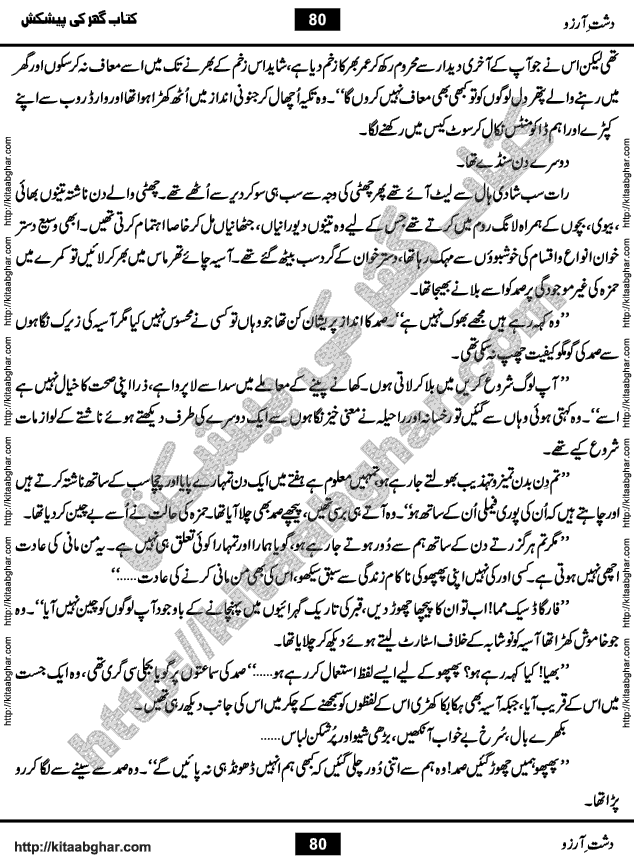 کتاب گھر کی پیشکش 80 دشت آرزو
تھی لیکن اس نے جو آپ کے آخری دیدار سے محروم رکھ کر عمر بھر کا زخم دیا ہے، شاید اس زخم کے بھرنے تک میں اسے معاف نہ کرسکوں اور گھر
میں رہنے والے پتھر دل لوگوں کو تو کبھی بھی معاف نہیں کروں گا‘‘۔ وہ تکیہ اُچھال کر جنونی انداز میں اُٹھ کھڑا ہوا تھا اور وارڈ روب سے اپنے
کپڑے اور اہم ڈاکومنٹس نکال کر سوٹ کیس میں رکھنے لگا۔
دوسرے دن سنڈے تھا۔
رات سب شادی ہال سے لیٹ آئے تھے پھر چھٹی کی وجہ سے سب ہی سو کر دیر سے اُٹھے تھے۔ چھٹی والے دن ناشتہ تینوں بھائی
، بیوی، بچوں کے ہمراہ لانگ روم میں کرتے تھے جس کے لیے وہ تینوں دیورانیاں، جٹھانیاں مل کر خاصا اہتمام کرتی تھیں۔ ابھی وسیع دستر
خوان انواع و اقسام کی خوشبوؤں سے مہک رہا تھا، دستر خوان کے گرد سب بیٹھ گئے تھے۔ آسیہ چائے تھرماس میں بھر کر لائیں تو کمرے میں
حمزہ کی غیر موجودگی پر صمد کو اسے بلانے بھیجا تھا۔
’’وہ کہہ رہے ہیں مجھے بھوک نہیں ہے‘‘۔ صمد کا انداز پریشان کن تھا جو وہاں تو کسی نے محسوس نہیں کیا مگر آسیہ کی زیرک نگاہوں
سے صمد کی گومگو کیفیت چھپ نہ سکی تھی۔
’’آپ لوگ شروع کریں میں بلا کر لاتی ہوں۔ کھانے پینے کے معاملے میں سدا سے لاپروا ہے، ذرا اپنی صحت کا خیال نہیں ہے
اسے‘‘۔ وہ کہتی ہوئی وہاں سے گئیں تو رخسانہ اور راحیلہ نے معنی خیز نگاہوں سے ایک دوسرے کی طرف دیکھتے ہوئے ناشتے کے لوازمات
شروع کیے تھے۔
’’تم دن بدن تمیز و تہذیب بھولتے جا رہے ہو، تمہیں معلوم ہے ہفتے میں ایک دن تمہارے پاپا اور چچا سب کے ساتھ ناشتہ کرتے ہیں
اور چاہتے ہیں کہ اُن کی پوری فیملی اُن کے ساتھ ہو‘‘۔ وہ آتے ہی برسی تھیں، پیچھے صمد بھی چلا آیا تھا۔ حمزہ کی حالت نے اُسے بے چین کر دیا تھا۔
’’مگر تم ہر گزرتے دن کے ساتھ ہم سے دُور ہوتے جا رہے ہو، گویا ہمارا اور تمہارا کوئی تعلق ہی نہیں ہے۔ یہ من مانی کی عادت
اچھی نہیں ہوتی ہے۔ کسی اور کی نہیں اپنی پھپھو کی ناکام زندگی سے سبق سیکھو، اس کی بھی من مانی کرنے کی عادت......‘‘
’’فار گاڈ سیک مما! اب تو ان کا پیچھا چھوڑ دیں، قبر کی تاریک گہرائیوں میں پہنچانے کے باوجود آپ لوگوں کو چین نہیں آیا‘‘۔ وہ
جو خاموش کھڑا تھا آسیہ کو نوشابہ کے خلاف اسٹارٹ لیتے ہوئے دیکھ کر چلایا تھا۔
’’بھیا! کیا کہہ رہے ہو؟ پھپھو کے لیے ایسے لفظ استعمال کر رہے ہو......‘‘ صمد کی سماعتوں پر گویا بجلی سی گری تھی، وہ ایک جست
میں اس کے قریب آیا، جبکہ آسیہ بھی ہکا بکا کھڑی اس کے لفظوں کو سمجھنے کے چکر میں اس کی جانب دیکھ رہی تھیں۔
بکھرے بال، سُرخ بے خواب آنکھیں، بڑھی شیو اور پُر شکن لباس......
’’پھپھو ہمیں چھوڑ گئیں صمد! وہ ہم سے اتنی دُور چلی گئیں کہ کبھی ہم انہیں ڈھونڈ ہی نہ پائیں گے‘‘۔ وہ صمد سے سینے سے لگا کر رو
پڑا تھا۔
http://kitaabghar.com 80 دشت آرزو
http://kitaabghar.com
http://kitaabghar.com
http://kitaabghar.com
http://kitaabghar.com
http://kitaabghar.com
http://kitaabghar.com
http://kitaabghar.com
http://kitaabghar.com
http://kitaabghar.com
http://kitaabghar.com
http://kitaabghar.com
http://kitaabghar.com
کتاب گھر کی پیشکش
http://kitaabghar.com